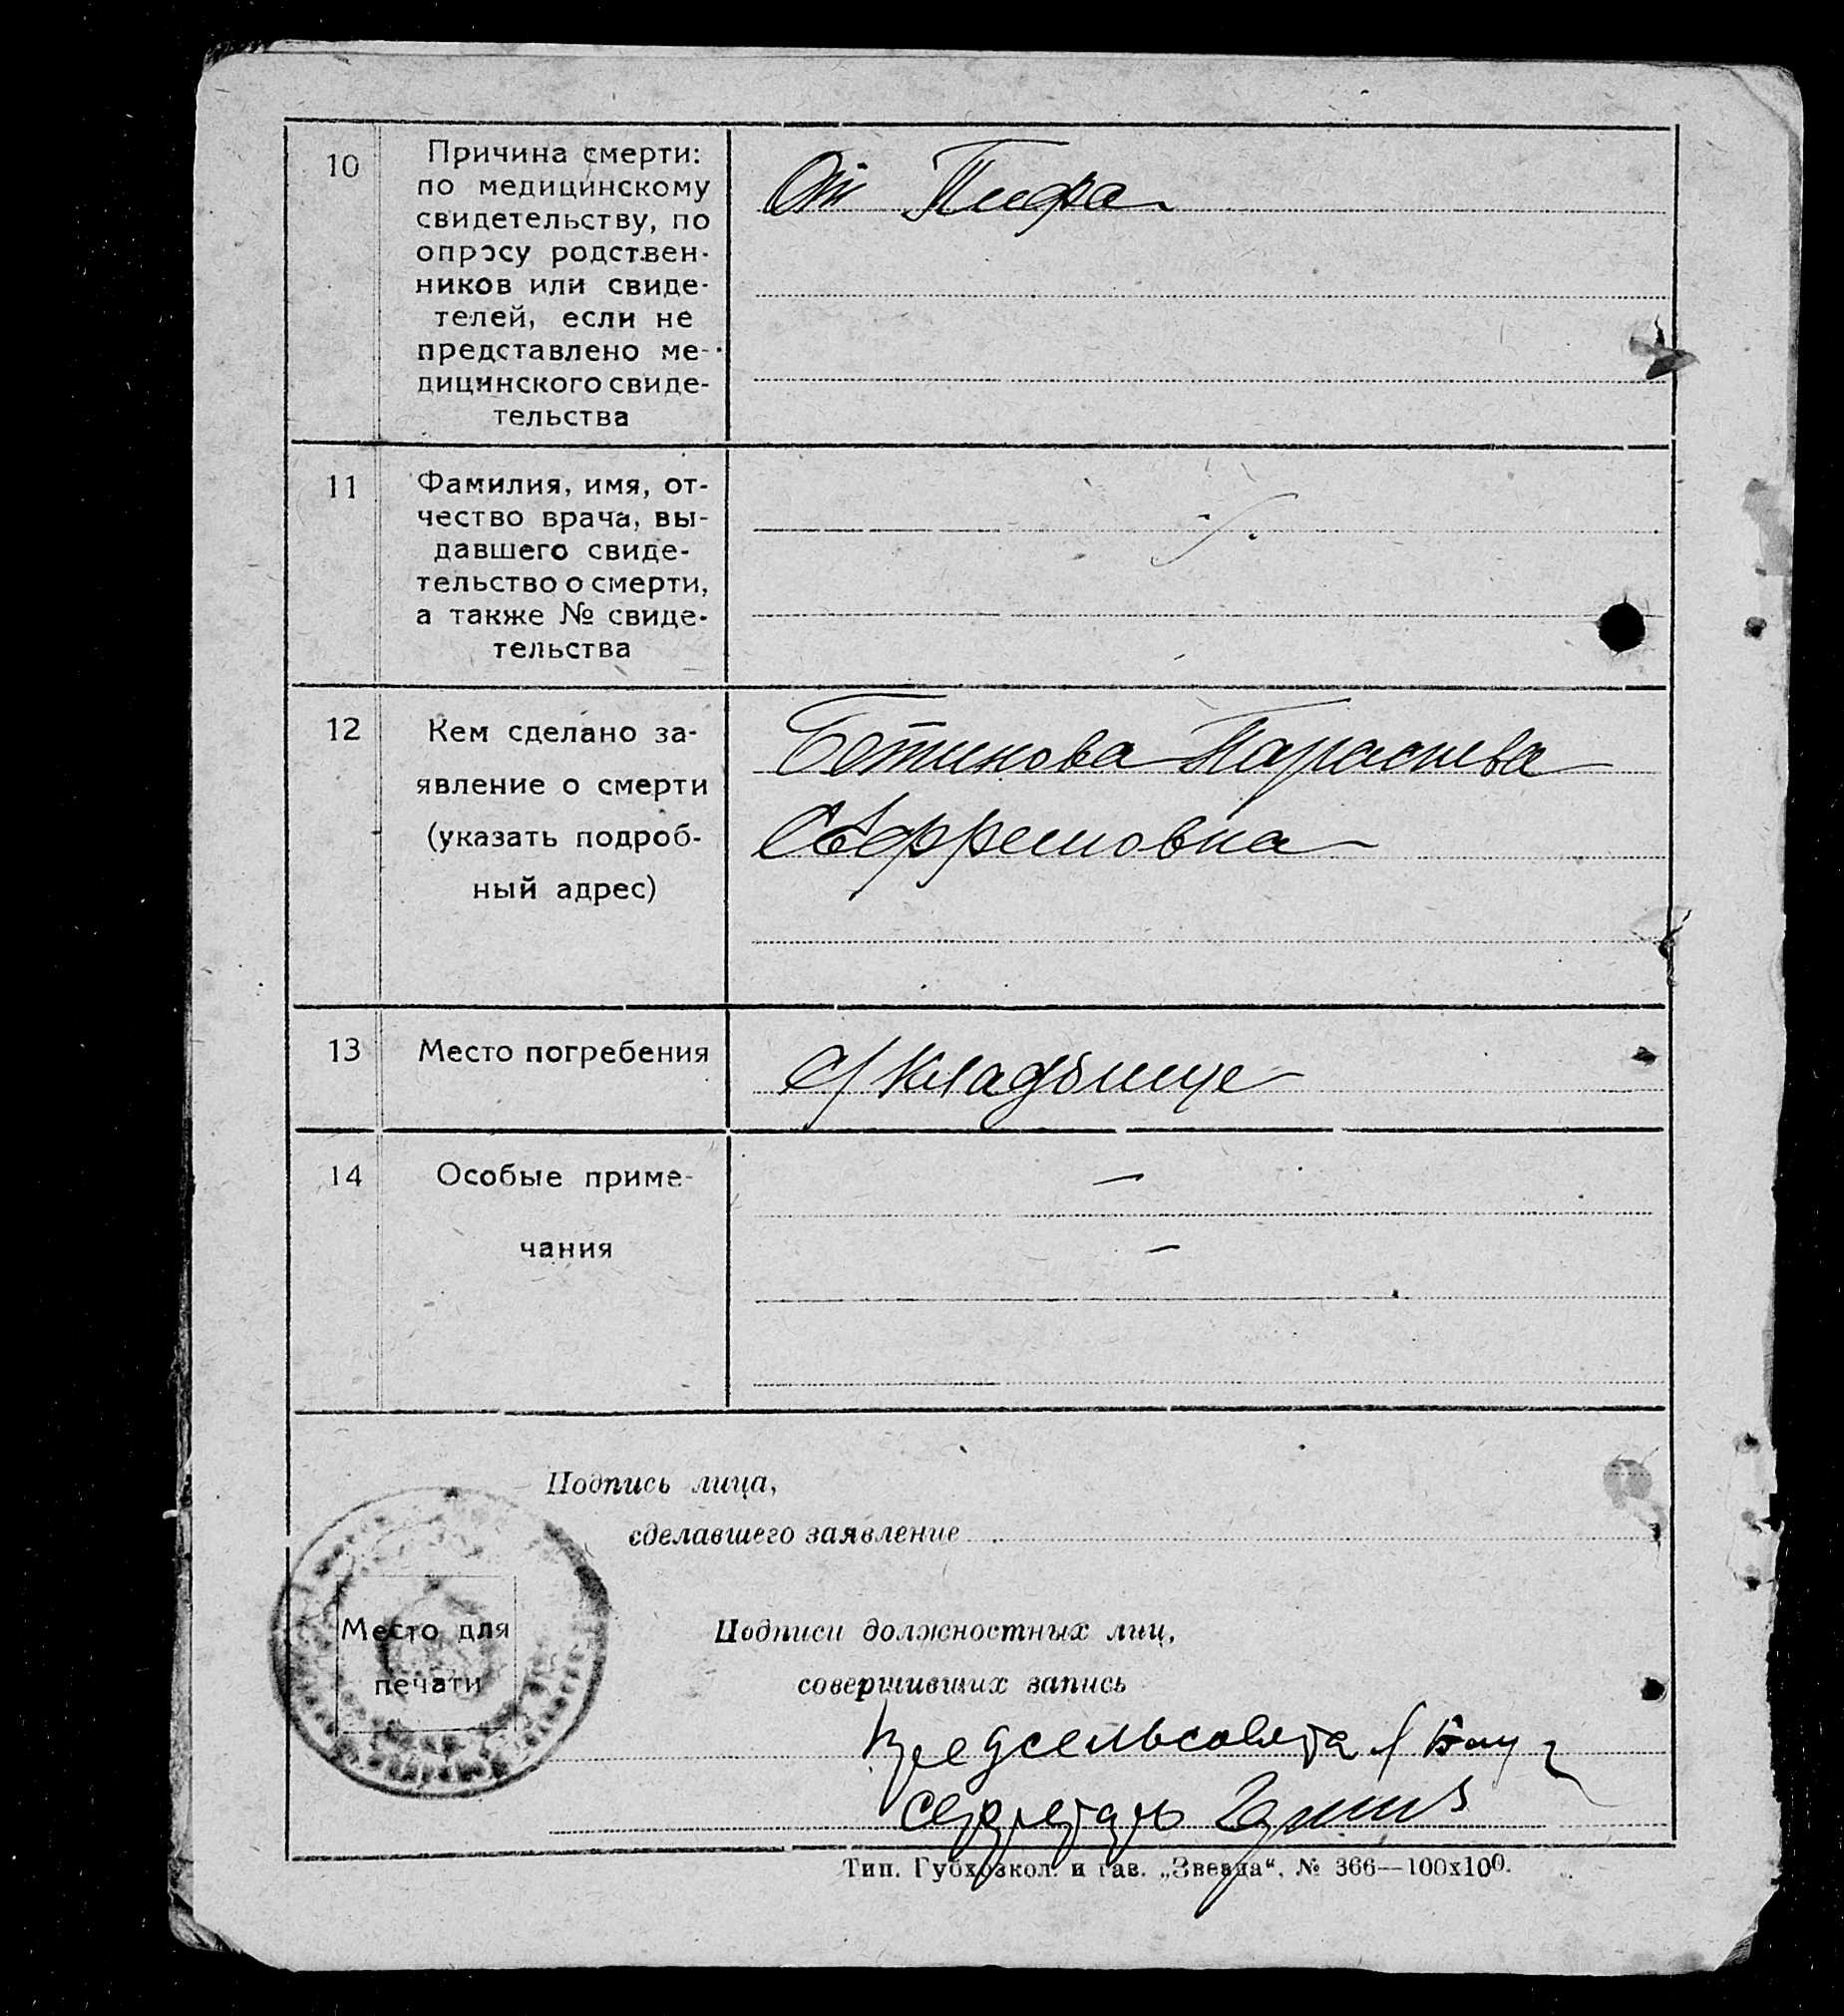 10
Причина смерти:
по медицинскому
свидетельству, по
опросу родствен-
ников или свиде-
телей, если не
представлено ме-
дицинского свиде-
тельства
От Тифа
11
Фамилия, имя, от-
чество врача, вы-
давшего свиде-
тельство о смерти,
а также № свиде-
тельства
12
Кем сделано за-
явление о смерти
(указать подроб-
ный адрес)
Парасковья
13
Место погребения
С/ Кладбище
14
Особые приме-
чания
—
—
Подпись лица,
сделавшего заявление
Место для
печати
Подписи должностных лиц,
совершивших запись
Предсельсовета
Секретарь
Тип. Губхозкол. и газ. „Звезда“, № 366—100х100.